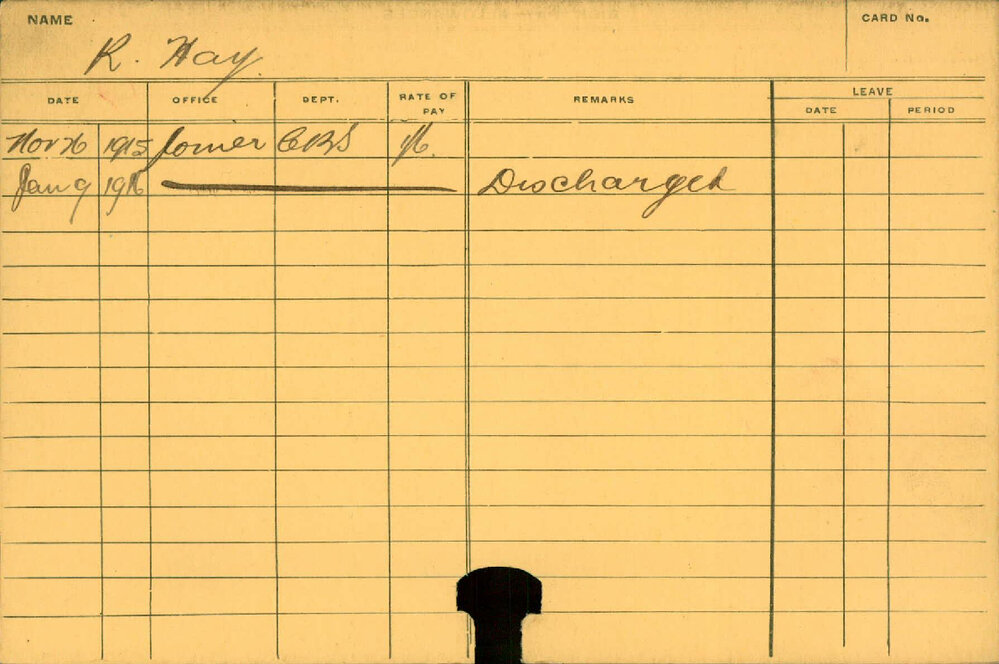 NAME CARD No.
R. Hay
DATE OFFICE DEPT. RATE OF PAY REMARKS LEAVE
DATE PERIOD
Nov 26 1915 Joiner CRS
Jan 9 1916 Discharged